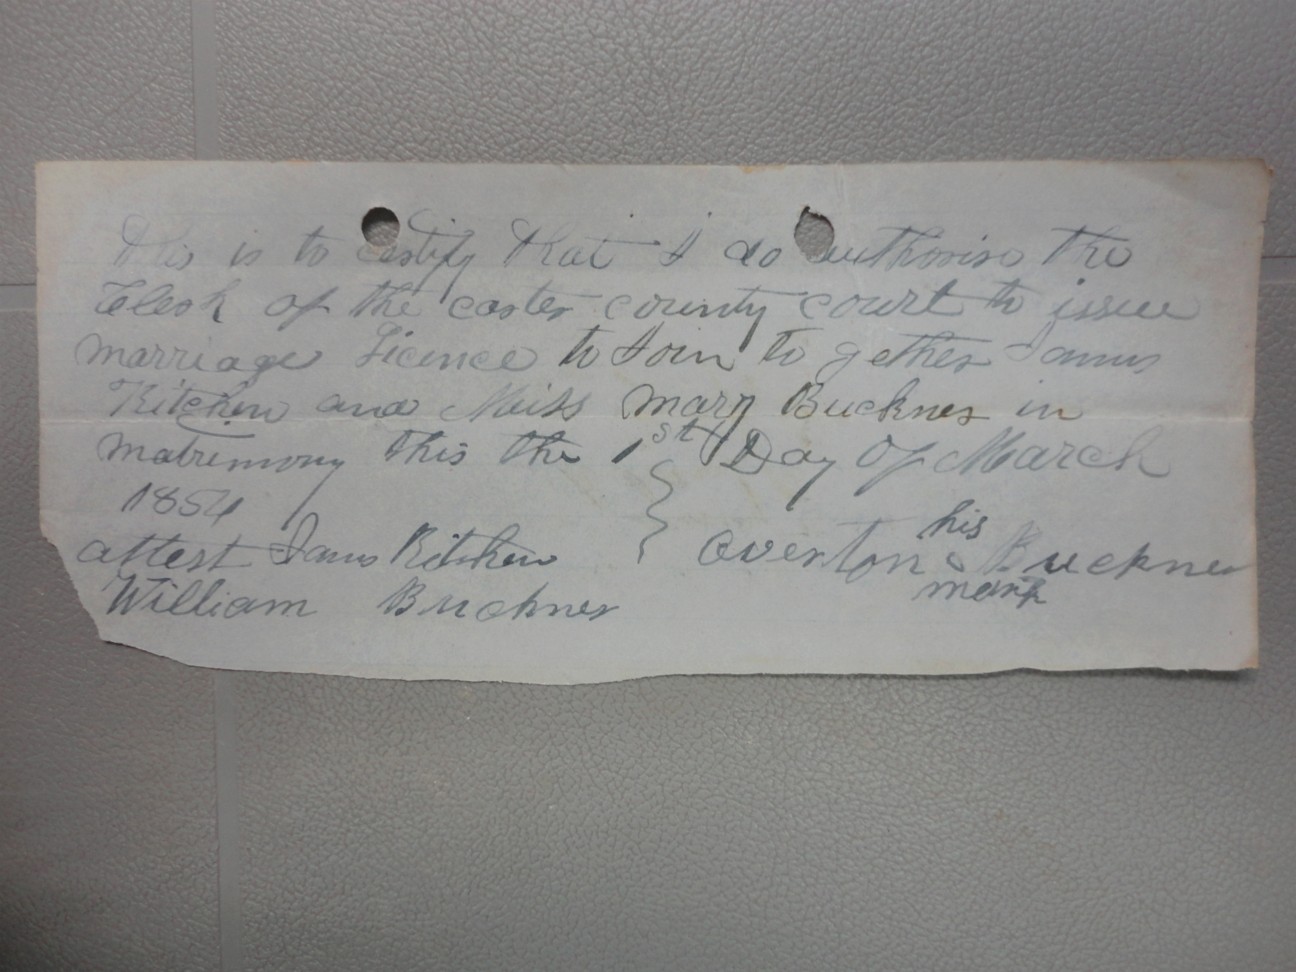 this is to certify that I do authorise the
Clerk of the carter county court to issue
marriage Licence to Join to gether James
Kitchen and Miss Mary Buckner in
matrimony this the 1st Day of March
1854
attest James Kitchen
William Buckner
his
Overton x Buckner
mark